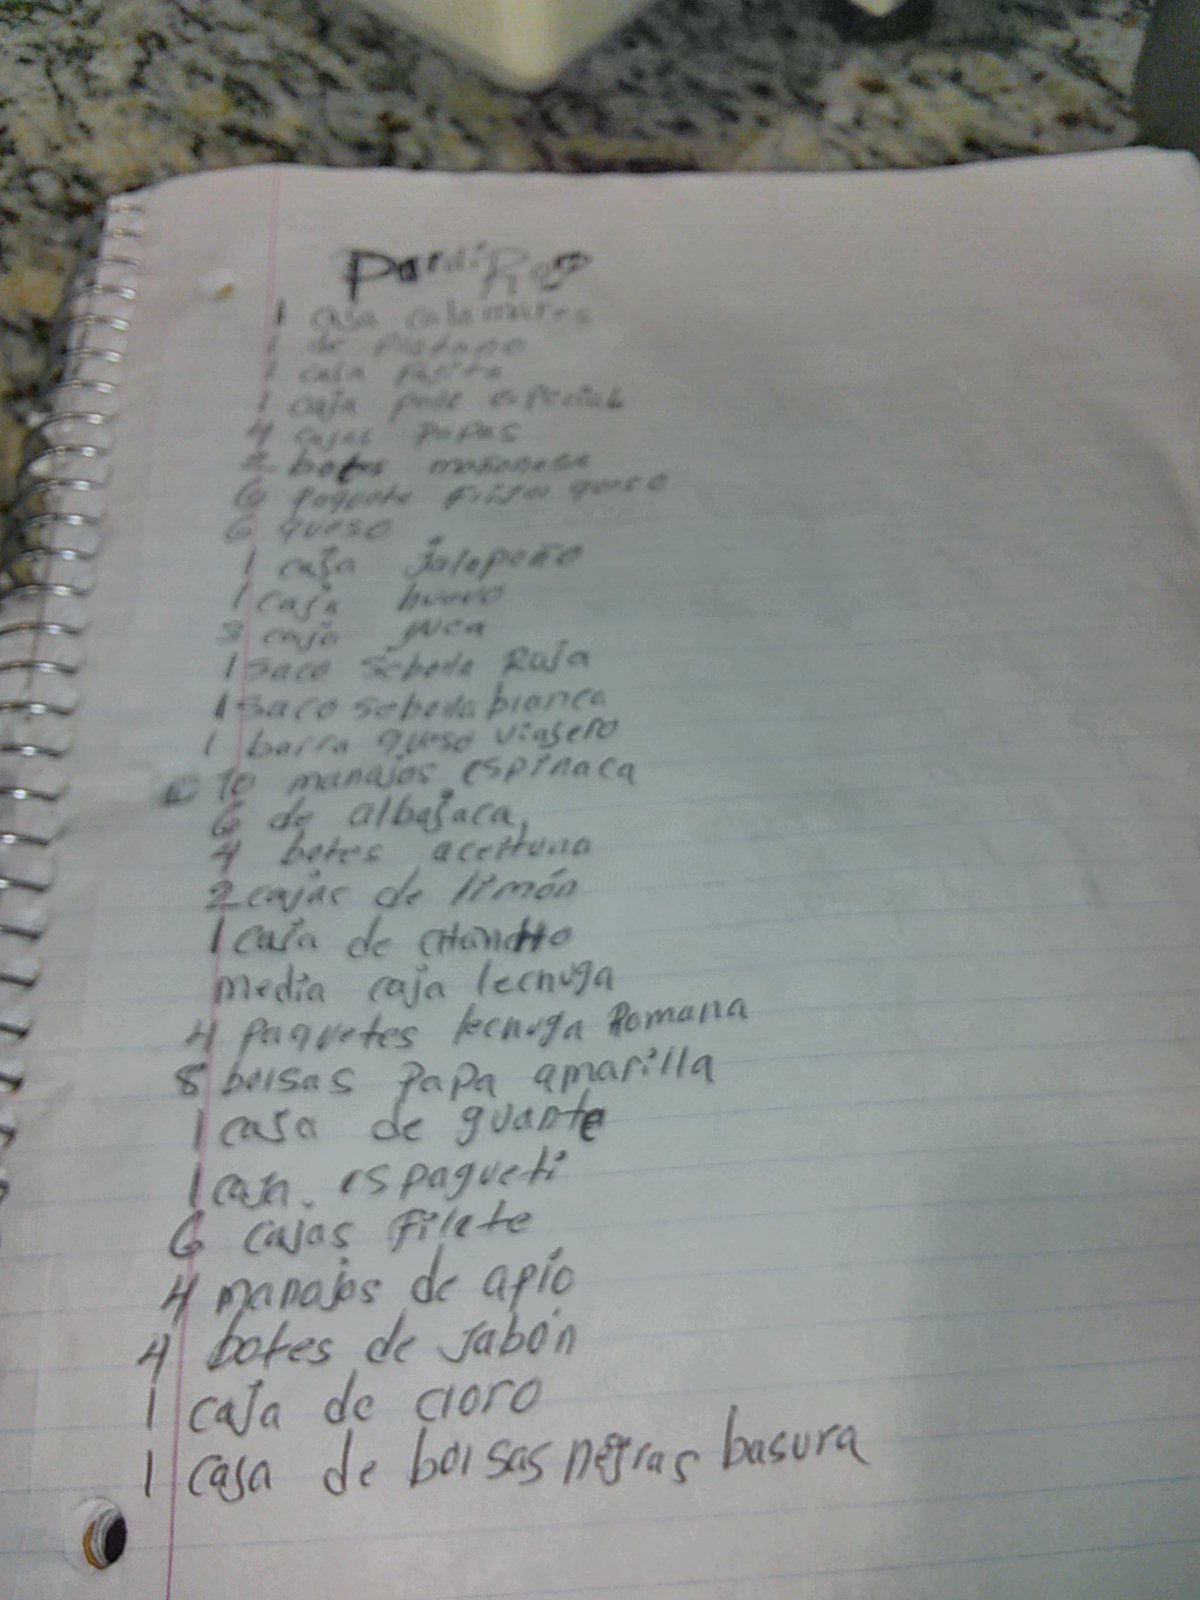 1 caja calamares
1 de platano
1 caja fajita
1 caja pane especial
4 cajas papas
2 botes mañonesa
6 paquete frijol queso
6 queso
1 caja jalopeño
1 caja huevo
3 caja yuca
1 saco sebolla Roja
1 saco sebolla blanca
1 barra queso viajero
10 manajos espinaca
6 de albajaca
4 botes aceituna
2 cajas de limón
1 caja de
media caja lechuga
4 paquetes lechuga Romana
8 bolsas papa amarilla
1 caja de guante
1 caja. espagueti
6 cajas Filete
4 manajos de apio
4 botes de Jabón
1 caja de cloro
1 caja de bolsas negras basura